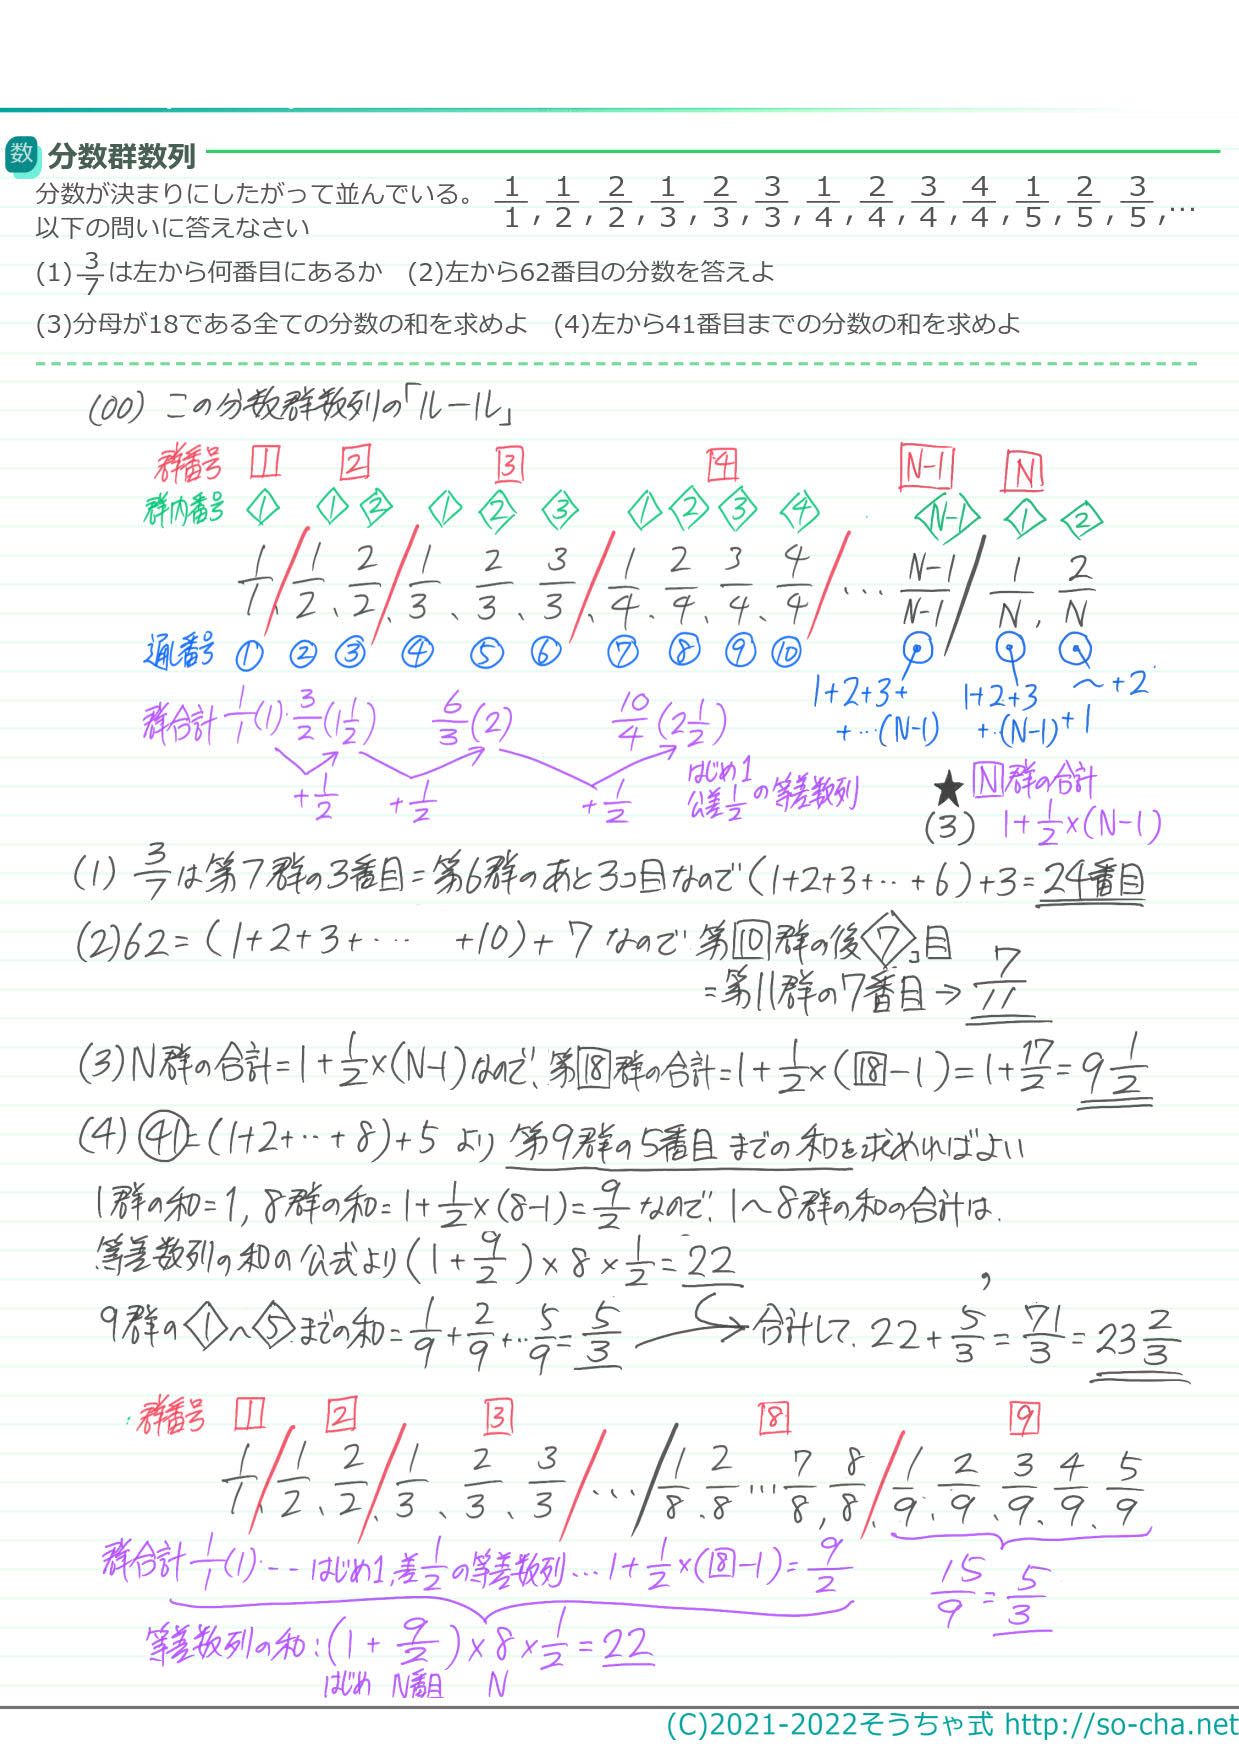 数 分数群数列
分数が決まりにしたがって並んでいる。 1/1 , 1/2 , 2/2 , 1/3 , 2/3 , 3/3 , 1/4 , 2/4 , 3/4 , 4/4 , 1/5 , 2/5 , 3/5 ,…
以下の問いに答えなさい
(1) 3/7 は左から何番目にあるか (2)左から62番目の分数を答えよ
(3)分母が18である全ての分数の和を求めよ (4)左から41番目までの分数の和を求めよ
(00) この分数群数列の「ルール」
群番号 1 2 3 4 N-1 N
群内番号 1 1 2 1 2 3 1 2 3 4 N-1 1 2
1/1、 1/2、 2/2、 1/3、 2/3、 3/3、 1/4、 2/4、 3/4、 4/4 … N-1/N-1 1/N , 2/N
通し番号 ① ② ③ ④ ⑤ ⑥ ⑦ ⑧ ⑨ ⑩
1+2+3+ +‥(N-1) 1+2+3 +‥(N-1)+1 ～+2
群合計 1/1(1)・ 3/2(1 1/2) 6/3(2) 10/4(2 1/2)
+1/2 +1/2 +1/2 はじめ1 公差1/2 の等差数列
★ N群の合計
(3) 1+1/2×(N-1)
(1) 3/7は第7群の3番目=第6群のあと3コ目なので(1+2+3+‥+6)+3=24番目
(2)62=(1+2+3+‥ +10)+7 なので 第10群の後7コ目
=第11群の7番目→ 7/11
(3)N群の合計=1+1/2×(N-1)なので、第18群の合計=1+1/2×(18-1)=1+17/2=9 1/2
(4) 41=(1+2+‥+8)+5 より 第9群の5番目までの和を求めればよい
1群の和=1, 8群の和=1+1/2×(8-1)=9/2 なので、1～8群の和の合計は、
等差数列の和の公式より(1+9/2)×8×1/2=22
9群の1～5までの和=1/9+2/9+‥5/9=5/3 → 合計して、22+5/3=71/3=23 2/3
群番号 1 2 3 8 9
1/1、 1/2、 2/2、 1/3、 2/3、 3/3 … 1/8、 2/8 … 7/8, 8/8、 1/9、 2/9、 3/9、 4/9、 5/9
群合計 1/1(1)・-- はじめ1,差1/2の等差数列…1+1/2×(18-1)=9/2
15/9=5/3
等差数列の和:(1+9/2)×8×1/2=22
はじめ N番目 N
(C)2021-2022そうちゃ式 http://so-cha.net